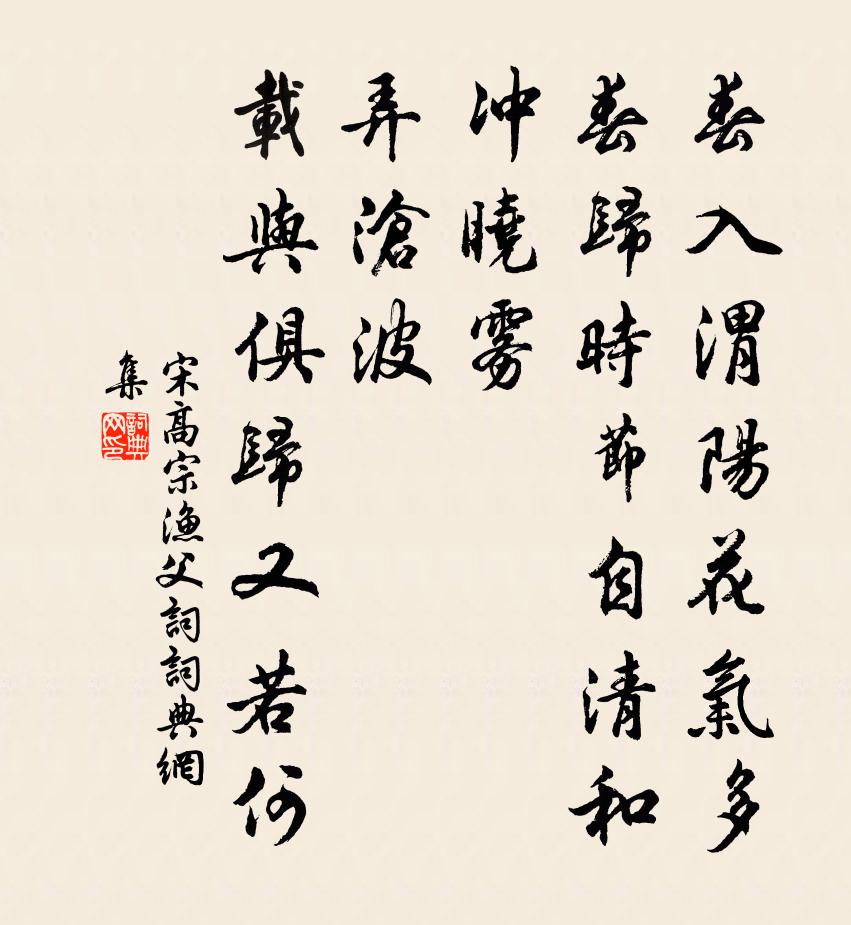 春入渭陽花氣多
春歸時節自清和
冲曉霧
弄滄波
載與俱歸又若何
宋高宗漁父詞詞典網
集
詞典
网印